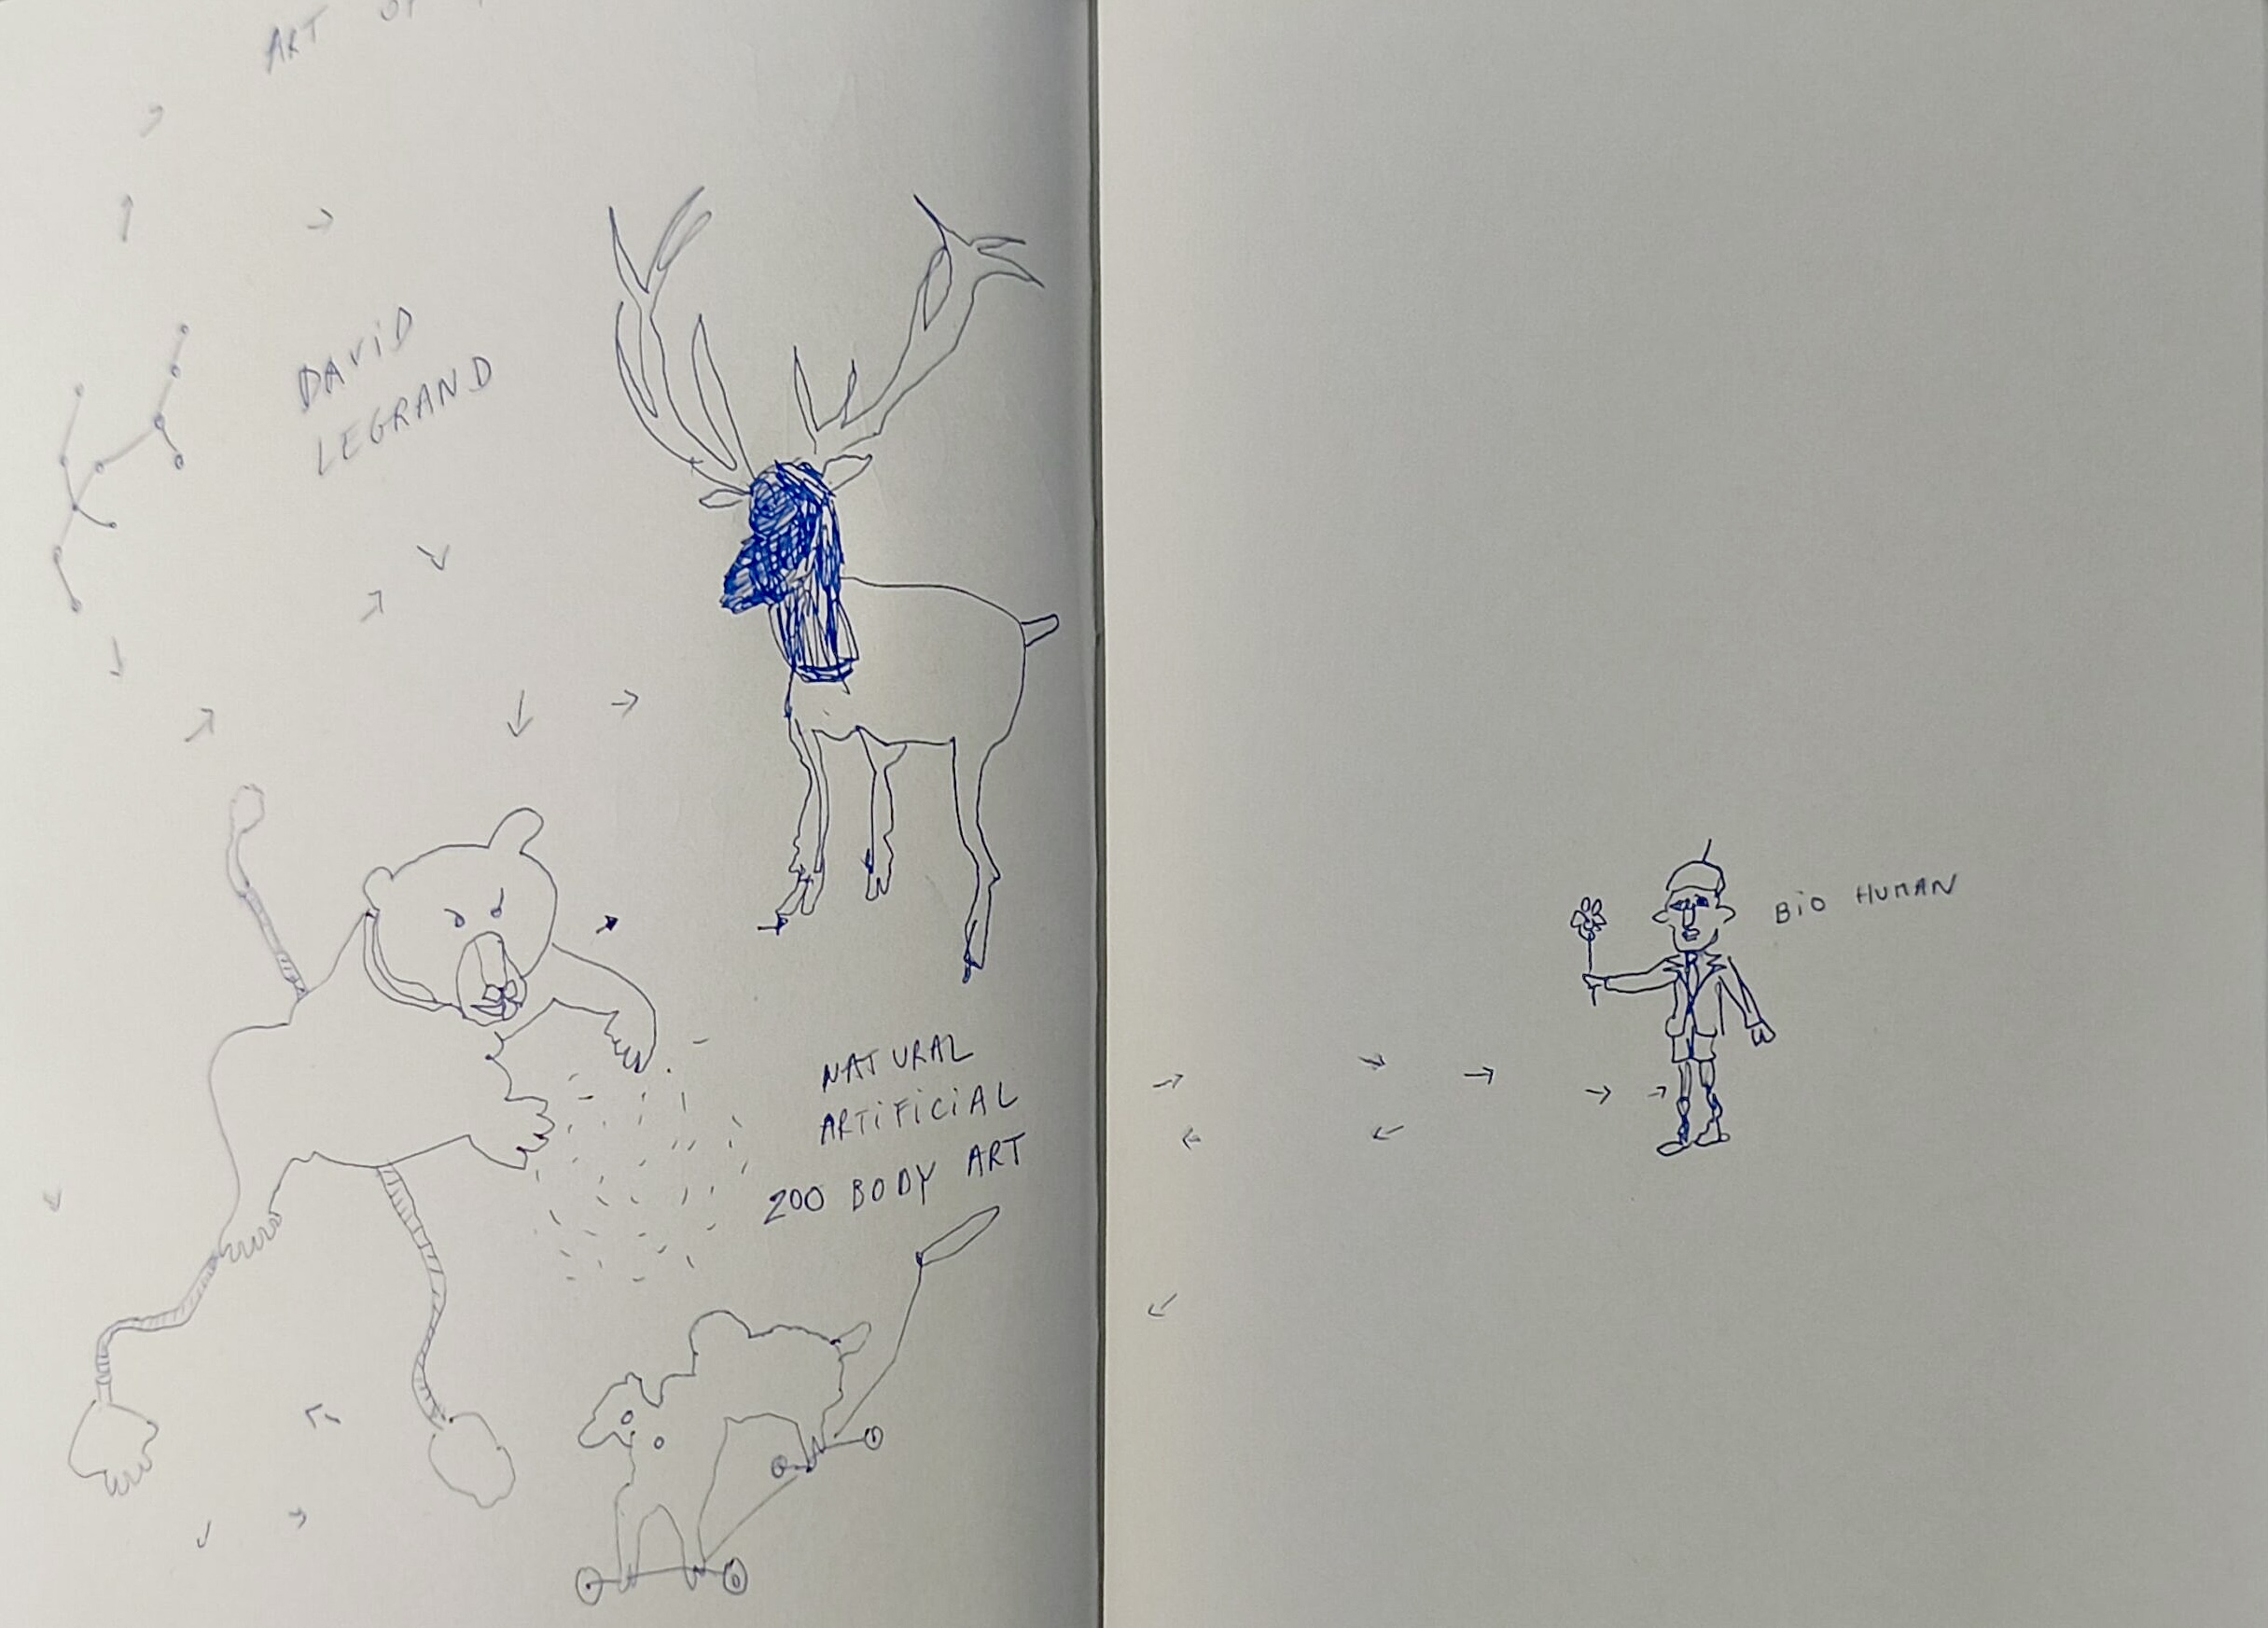 ART
DAViD
LEGRAND
NATURAL
ARTiFiCiAL
ZOO BODY ART
BiO HUMAN